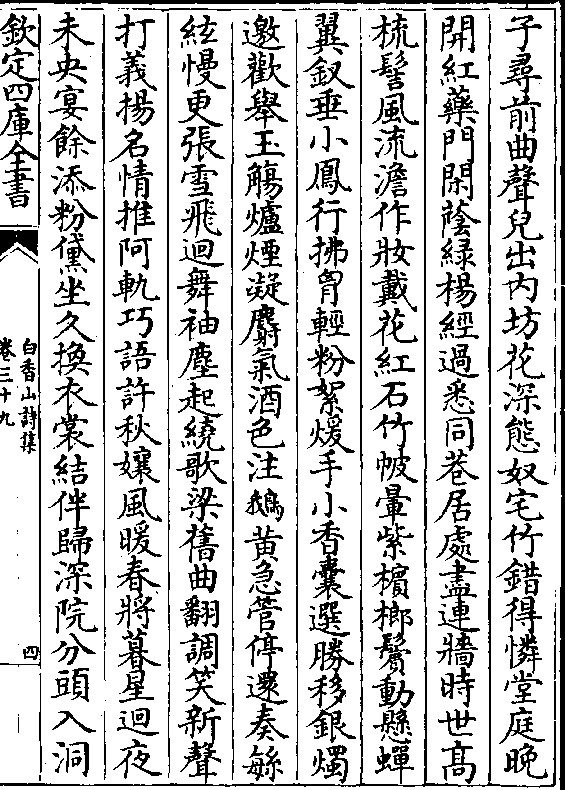 子尋前曲聲兒出内坊花深態奴宅竹錯得憐堂庭晚
開紅藥門閑蔭緑楊經過悉同巷居處盡連牆時世髙
梳髻風流澹作妝戴花紅石竹帔暈紫檳榔鬢動懸蟬
翼釵垂小鳳行拂胷輕粉絮煖手小香囊選勝移銀燭
邀歡舉玉觴爐煙凝麝氣酒色注鵝黃急管停還奏繁
絃慢更張雪飛迴舞袖塵起繞歌梁舊曲翻調笑新聲
打義揚名情推阿軌巧語許秋孃風暖春將暮星迴夜
未央宴餘添粉黛坐久換衣裳結伴歸深院分頭入洞
欽定四庫全書
白香山詩集
卷三十九
四